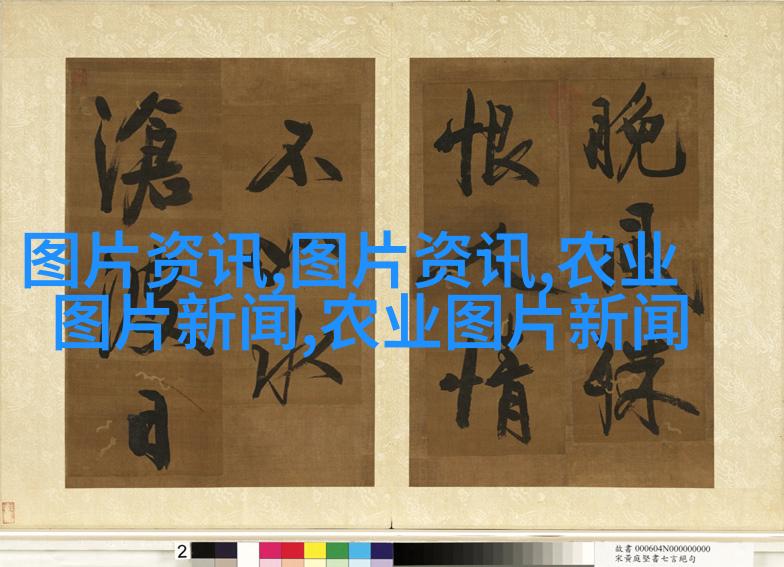 图片资讯,图片资讯,农业
图片新闻,农业图片新闻
晚風
恨
情
不
水
滄波日
2
故書 000604N000000000
宋黃庭堅書七言絕句